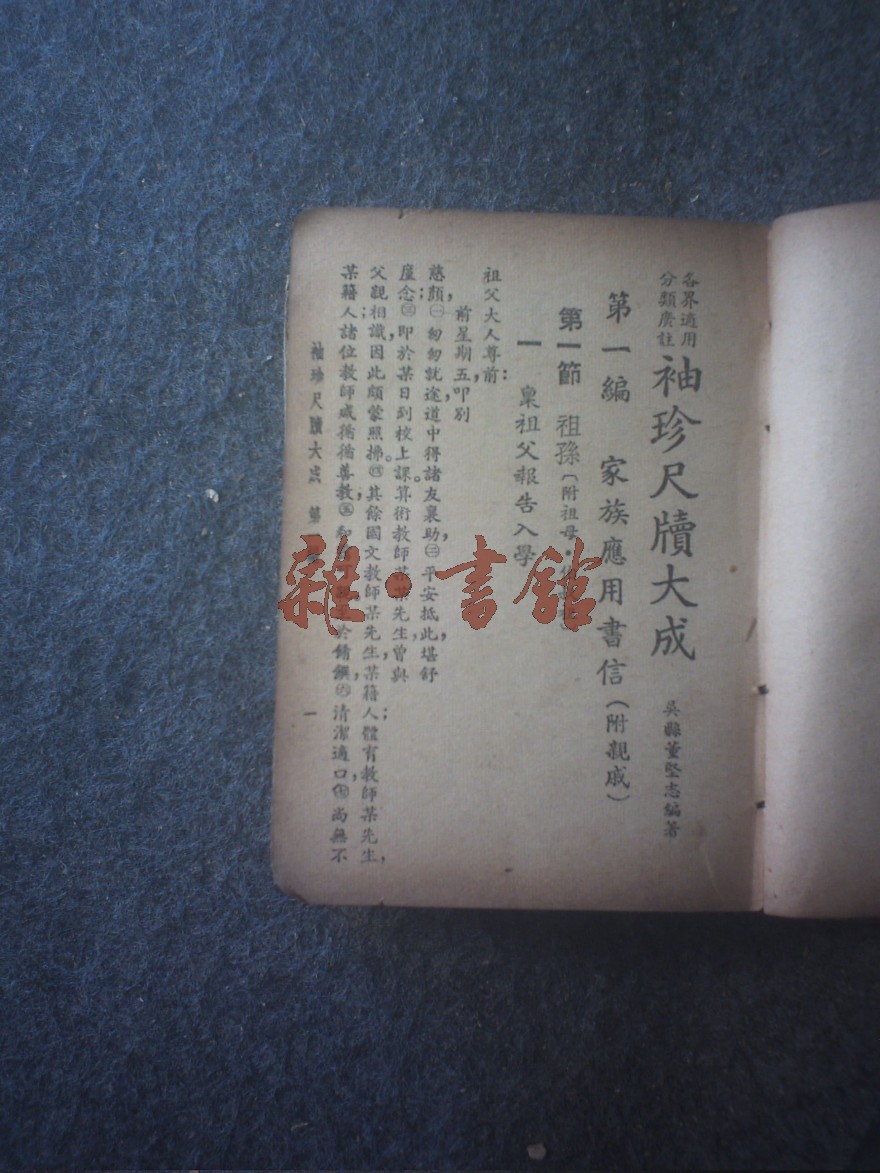 各界適用
分類廣註
袖珍尺牘大成
吳縣董堅志編著
第一編 家族應用書信(附親戚)
第一節 祖孫(附祖母·
一 稟祖父報告入學
祖父大人尊前:
前星期五,叩別
慈顏,㊀匆匆就途道中得諸友襄助,㊁平安抵此,堪舒
廑念;㊂即於某日到校上課。算術教師某某先生,曾與
父親相識,因此頗蒙照拂。㊃其餘國文教師某先生,某籍人;體育教師某先生,
某籍人;諸位教師咸循循善教,㊄ 於餚饌,㊅清潔適口,㊆尚無不
袖珍尺牘大成 第
一
雜·書館